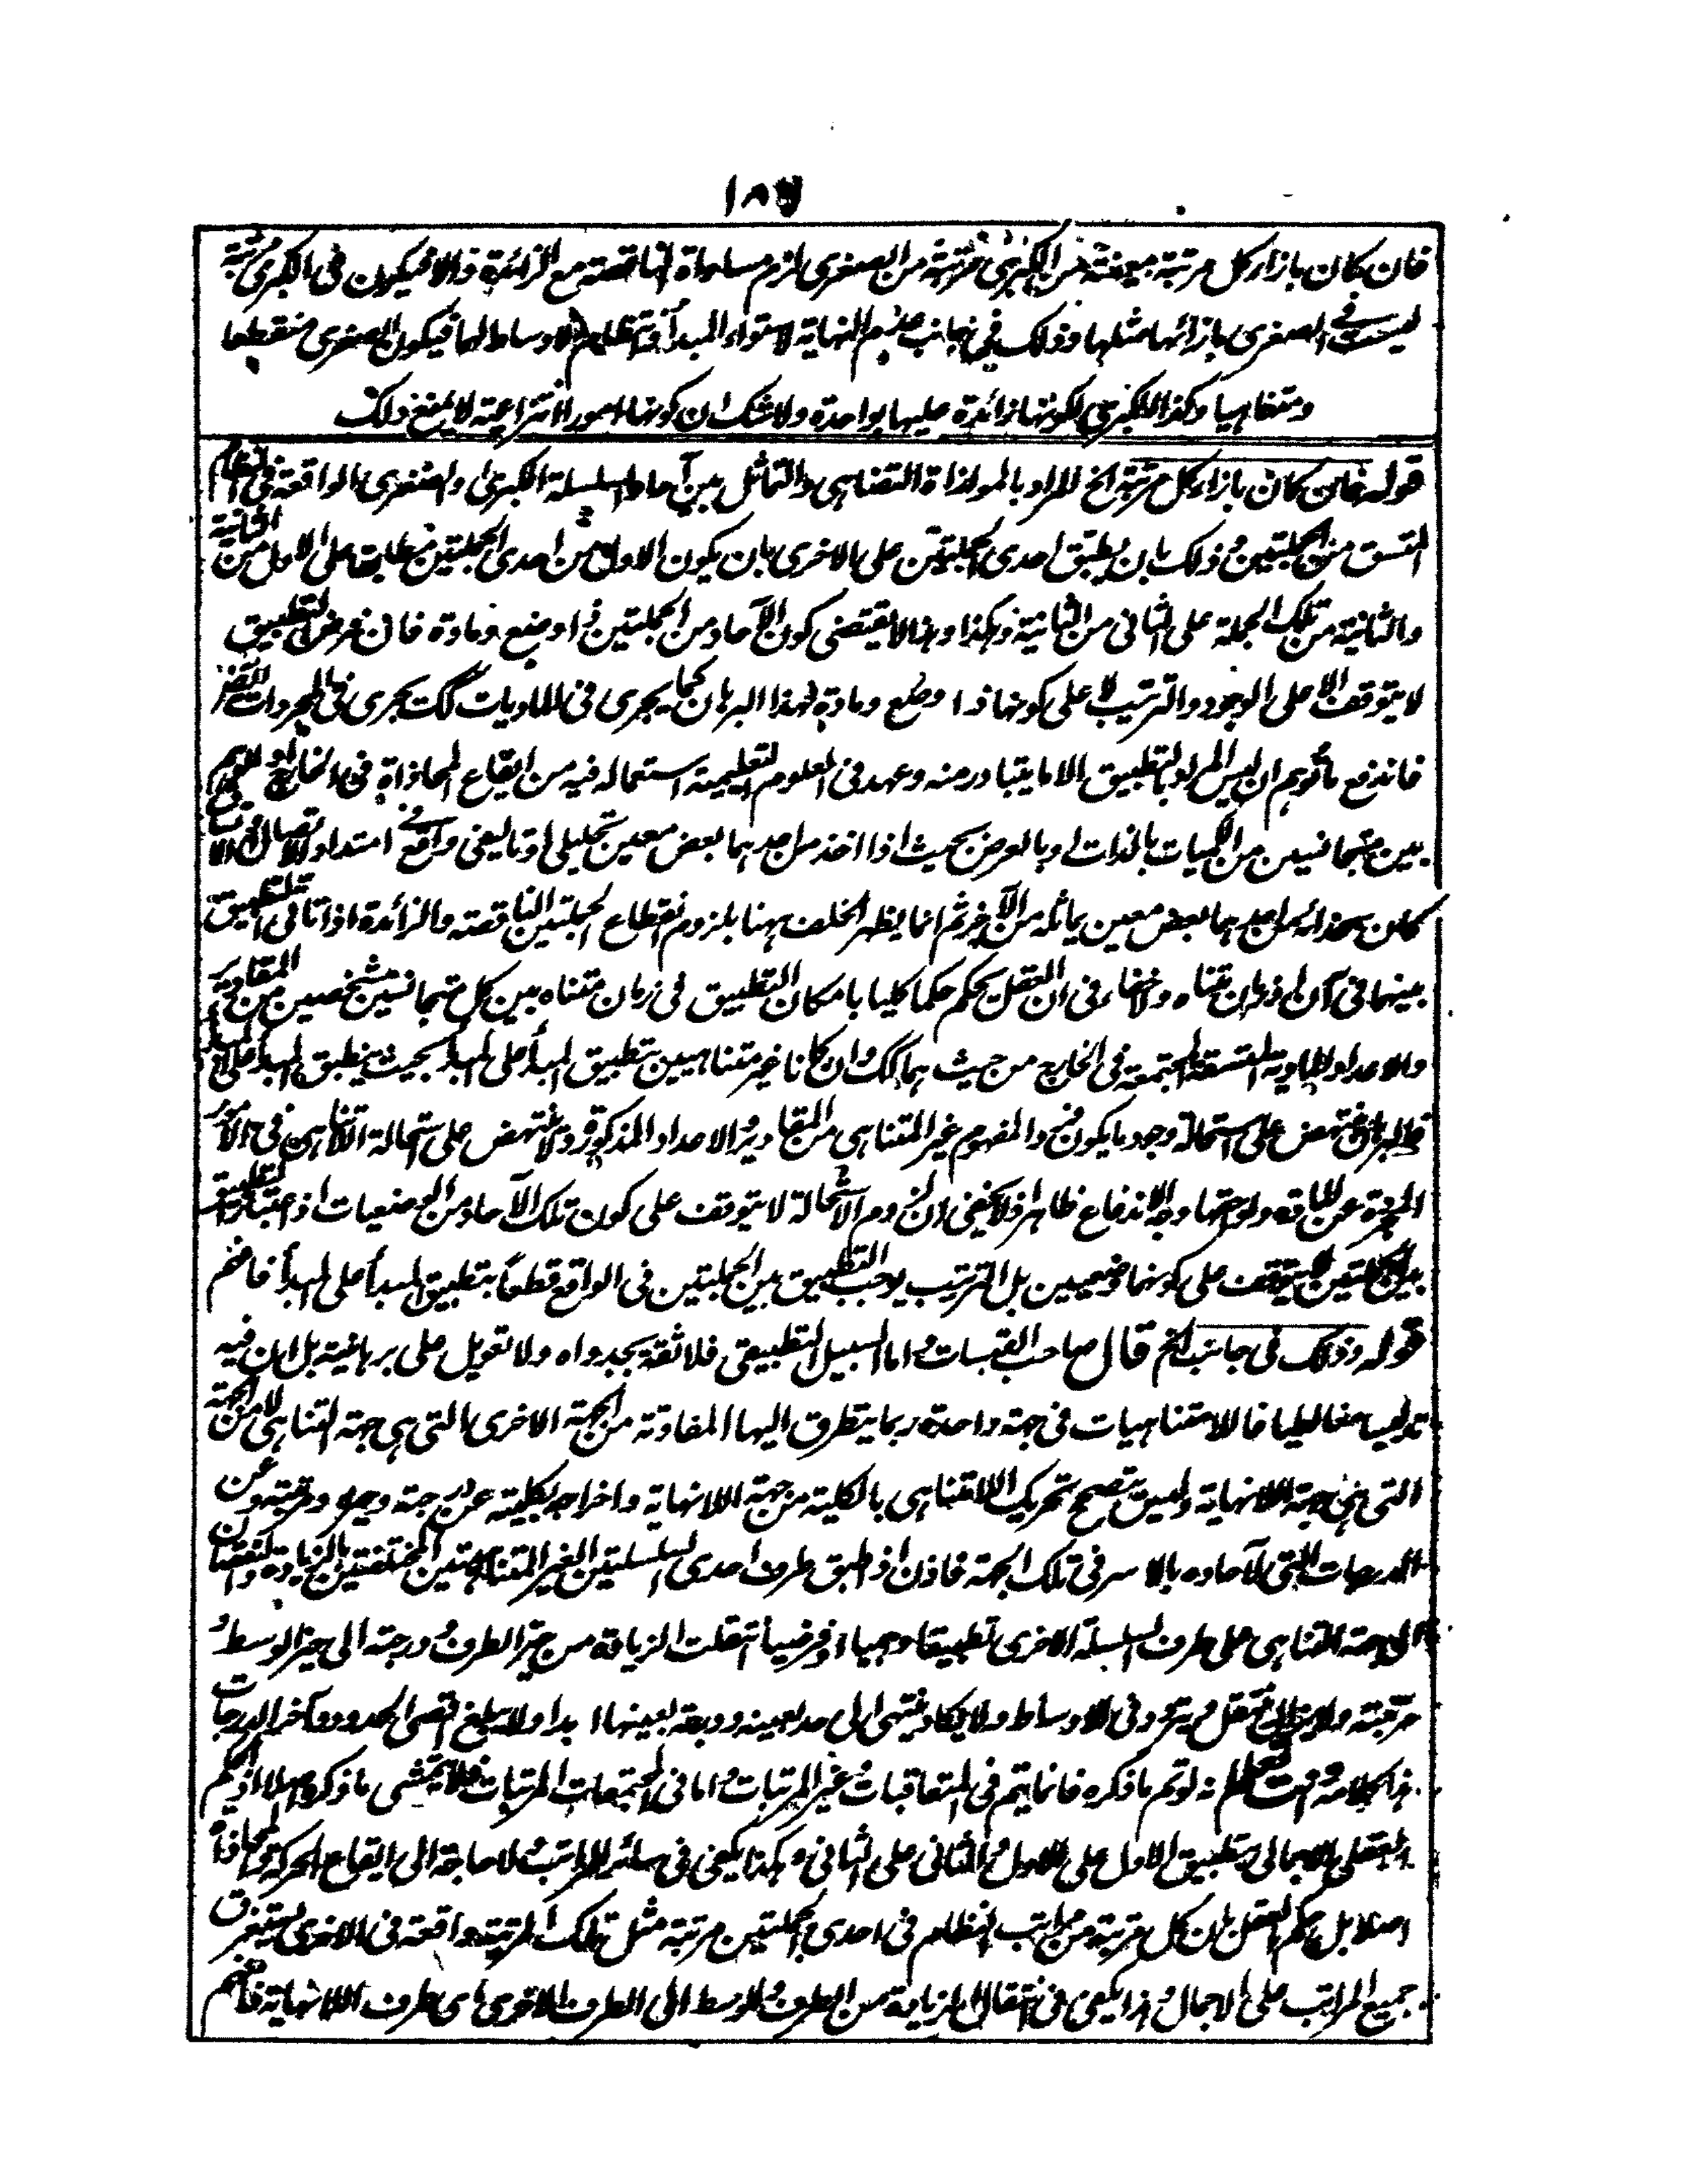 ١٨٧
فان كان بازاء كل مرتبة معينة من الكبرى مرتبة من الصغرى لزم مساواة الناقصة مع الزائدة والا فيكون فى الكبرى مرتبة
ليست فى الصغرى بازائها مثلها وذلك فى جانب عدم النهاية لاستواء المبدأ وانتظام الاوساط لها فيكون الصغرى منقطعا
ومتناهيا وكذا الكبرى لكونها زائدة عليها بواحدة ولا شك ان كونها امورا انتزاعية لا يمنع ذلك
قوله فان كان بازاء كل مرتبة الخ المراد بالموازاة التضاهى والتماثل بين آحاد السلسلة الكبرى والصغرى الواقعة فى النظام
المتسق من الجملتين وذلك بان يطبق احدى الجملتين على الاخرى بان يكون الاول من احدى الجملتين مطابقا على الاول من الثانية
والثانية من تلك الجملة على الثانى من الثانية وهكذا وهذا لا يقتضى كون الآحاد من الجملتين ذا وضع ومادة فان فرض التطبيق
لا يتوقف الا على الوجود والترتيب لا على كونها ذا وضع ومادة فهذا البرهان كما يجرى فى الماديات كك يجرى فى المجردات
فاندفع ما توهم ان ليس المراد بالتطبيق الا ما يتبادر منه وعهد فى العلوم التعليمية استعماله فيه من ايقاع المحاذاة فى الخارج او
بين متجانسين من الكميات بالذات او بالعرض بحيث اذا اخذ من احدهما بعض معين تحليلى او تاليفى واقع فى امتداد الاتصال
كان بحذائه من احدهما بعض معين يماثله من الآخر ثم انما يظهر الخلف ههنا بلزوم انقطاع الجملتين الناقصة والزائدة اذا تاتى التطبيق
بينهما فى آن او زمان متناه ولا خفاء فى ان العقل يحكم حكما كليا بامكان التطبيق فى زمان متناه بين كل متجانسين متشخصين من المقادير
والاعداد المادية المتسقة المجتمعة فى الخارج من حيث هما كك وان كانا غير متناهيين بتطبيق المبدأ على المبدأ بحيث ينطبق المبدأ على المبدأ
فالبرهان ينتهض على استحالة وجود ما يكون المفهوم غير المتناهى من المقادير والاعداد المذكورة ولا ينتهض على استحالة اللاتناهى فى الامور
المجردة عن المادة ولواحقها وجه الاندفاع ظاهر ولا يخفى ان لزوم الاستحالة لا يتوقف على كون تلك الآحاد من الوضعيات اذ اعتبار التطبيق
بين الجملتين لا يتوقف على كونهما وضعيين بل الترتيب يوجب التطبيق بين الجملتين فى الواقع قطعاً بتطبيق المبدأ على المبدأ فافهم
قوله وذلك فى جانب الخ قال صاحب القبسات واما السبيل التطبيقى فلا ثقة بجدواه ولا تعويل على برهانيته بل ان فيه
تدليسا مغالطيا فاللامتناهيات فى جهة واحدة ربما يتطرق اليها المفاوتة من الجهة الاخرى التى هى جهة التناهى لا من الجهة
التى هى جهة اللانهاية وليس يتصحح تحريك اللامتناهى بالكلية من جهة اللانهاية واخراجه بكليته عن درجته وحيزه ومرتبته وعن
الدرجات التى لآحاده بالاسر فى تلك الجهة فاذن اذ اطبق طرف احدى السلسلتين الغير المتناهيتين المختلفتين بالزيادة والنقصان
الى جهة التناهى على طرف السلسلة الاخرى تطبيقا وهميا او فرضيا انتقلت الزيادة من حيز الطرف ودرجته الى حيز الوسط و
مرتبته ولا يزال ينتقل ويتردد فى الاوساط ولا يكاد ينتهى الى حد بعينه ودرجة بعينها ابدا ولا يبلغ اقصى الحدود وآخر الدرجات
هذا كلامه وانت تعلم انه لو تم ما ذكره فانما يتم فى المتعاقبات وغير المرتبات واما فى المجتمعات المرتبات فلا يتمشى ما ذكره اصلا اذ الحكم
العقلى الاجمالى بتطبيق الاول على الاول والثانى على الثانى وهكذا يكفى فى سائر المراتب ولا حاجة الى ايقاع الحركة والمحاذاة
اصلا بل يحكم العقل بان كل مرتبة من مراتب النظام فى احدى الجملتين مرتبة مثل تلك المرتبة واقعة فى الاخرى يستغرق
جميع المراتب على الاجمال وهذا يكفى فى انتقال الزيادة من الطرف والوسط الى الطرف الاخرى اى طرف اللانهاية فافهم